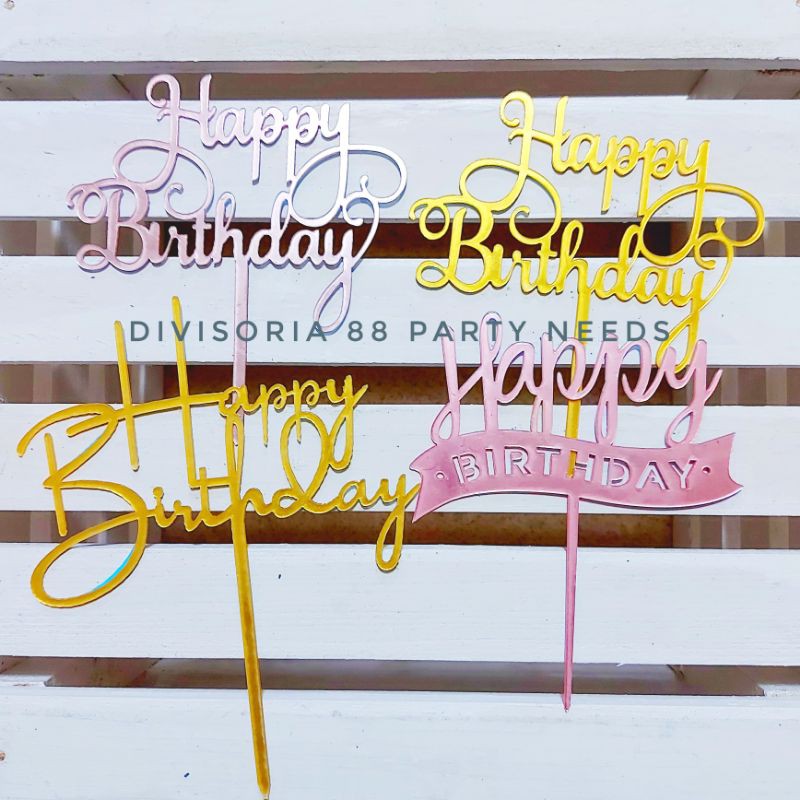 Happy
Birthday
Happy
Birthday
DIVISORIA 88 PARTY NEEDS
Happy
Birthday
Happy
BIRTHDAY